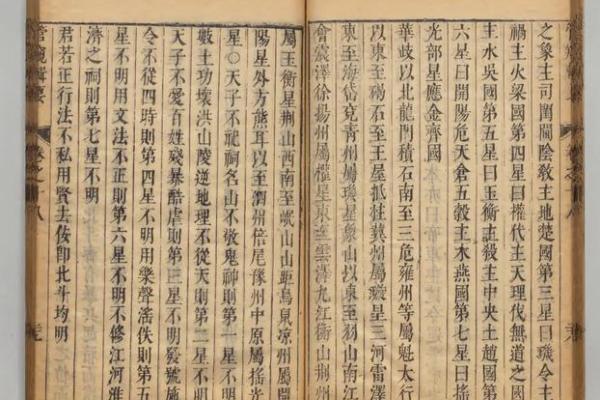 之象主司閨閫陰教主地楚國第三星曰璣令主
禍主火梁國第四星曰權代主天理伐無道之國
主水吳國第五星曰玉衡主殺主中央土趙國第
六星曰開陽危天倉五穀主水燕國第七星曰搖
光部星應金齊國
華岐以北龍門積石南至三危雍州等屬魁太行
以東至碣石至王屋抵柱冀州屬璇星三河雷澤
東至海岱兗青州屬璣星象山以東至羽山南江
會震澤徐揚州屬權星東至雲澤九江衡山荆州
屬玉衡星荆山西南至岷山山距鳥鼠凉州屬開
陽星外方熊耳以至渭州倍尾豫州中原屬搖光
星○天子不祀祠名山不敬鬼神則第一星不明
數土功壞洪山陵逆地理不從天則第二星不明
天子不愛百姓殘暴酷虐則第三星不明發號施
令不從四時則第四星不明用樂聲淫佚則第五
星不明用文法不正則第六星不明不修江河淮
濟之祠則第七星不明
君若正行法不私用賢去佞卽北斗均明
管窺輯要 卷之十八